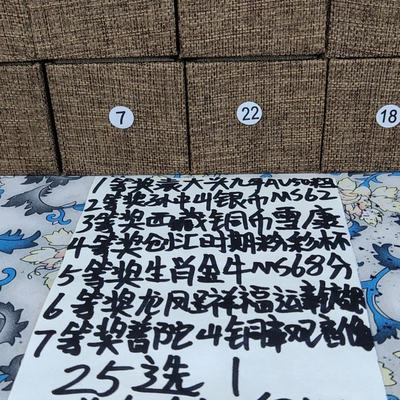 7
22
18
1等奖袁大头九年AU50粗
2等奖孙中山银币MS62
3等奖西藏铜币雪康
4等奖 时期粉彩杯
5等奖生肖金牛MS68分
6等奖龙凤呈祥福运
7等奖普陀山铜 观音像
25选1